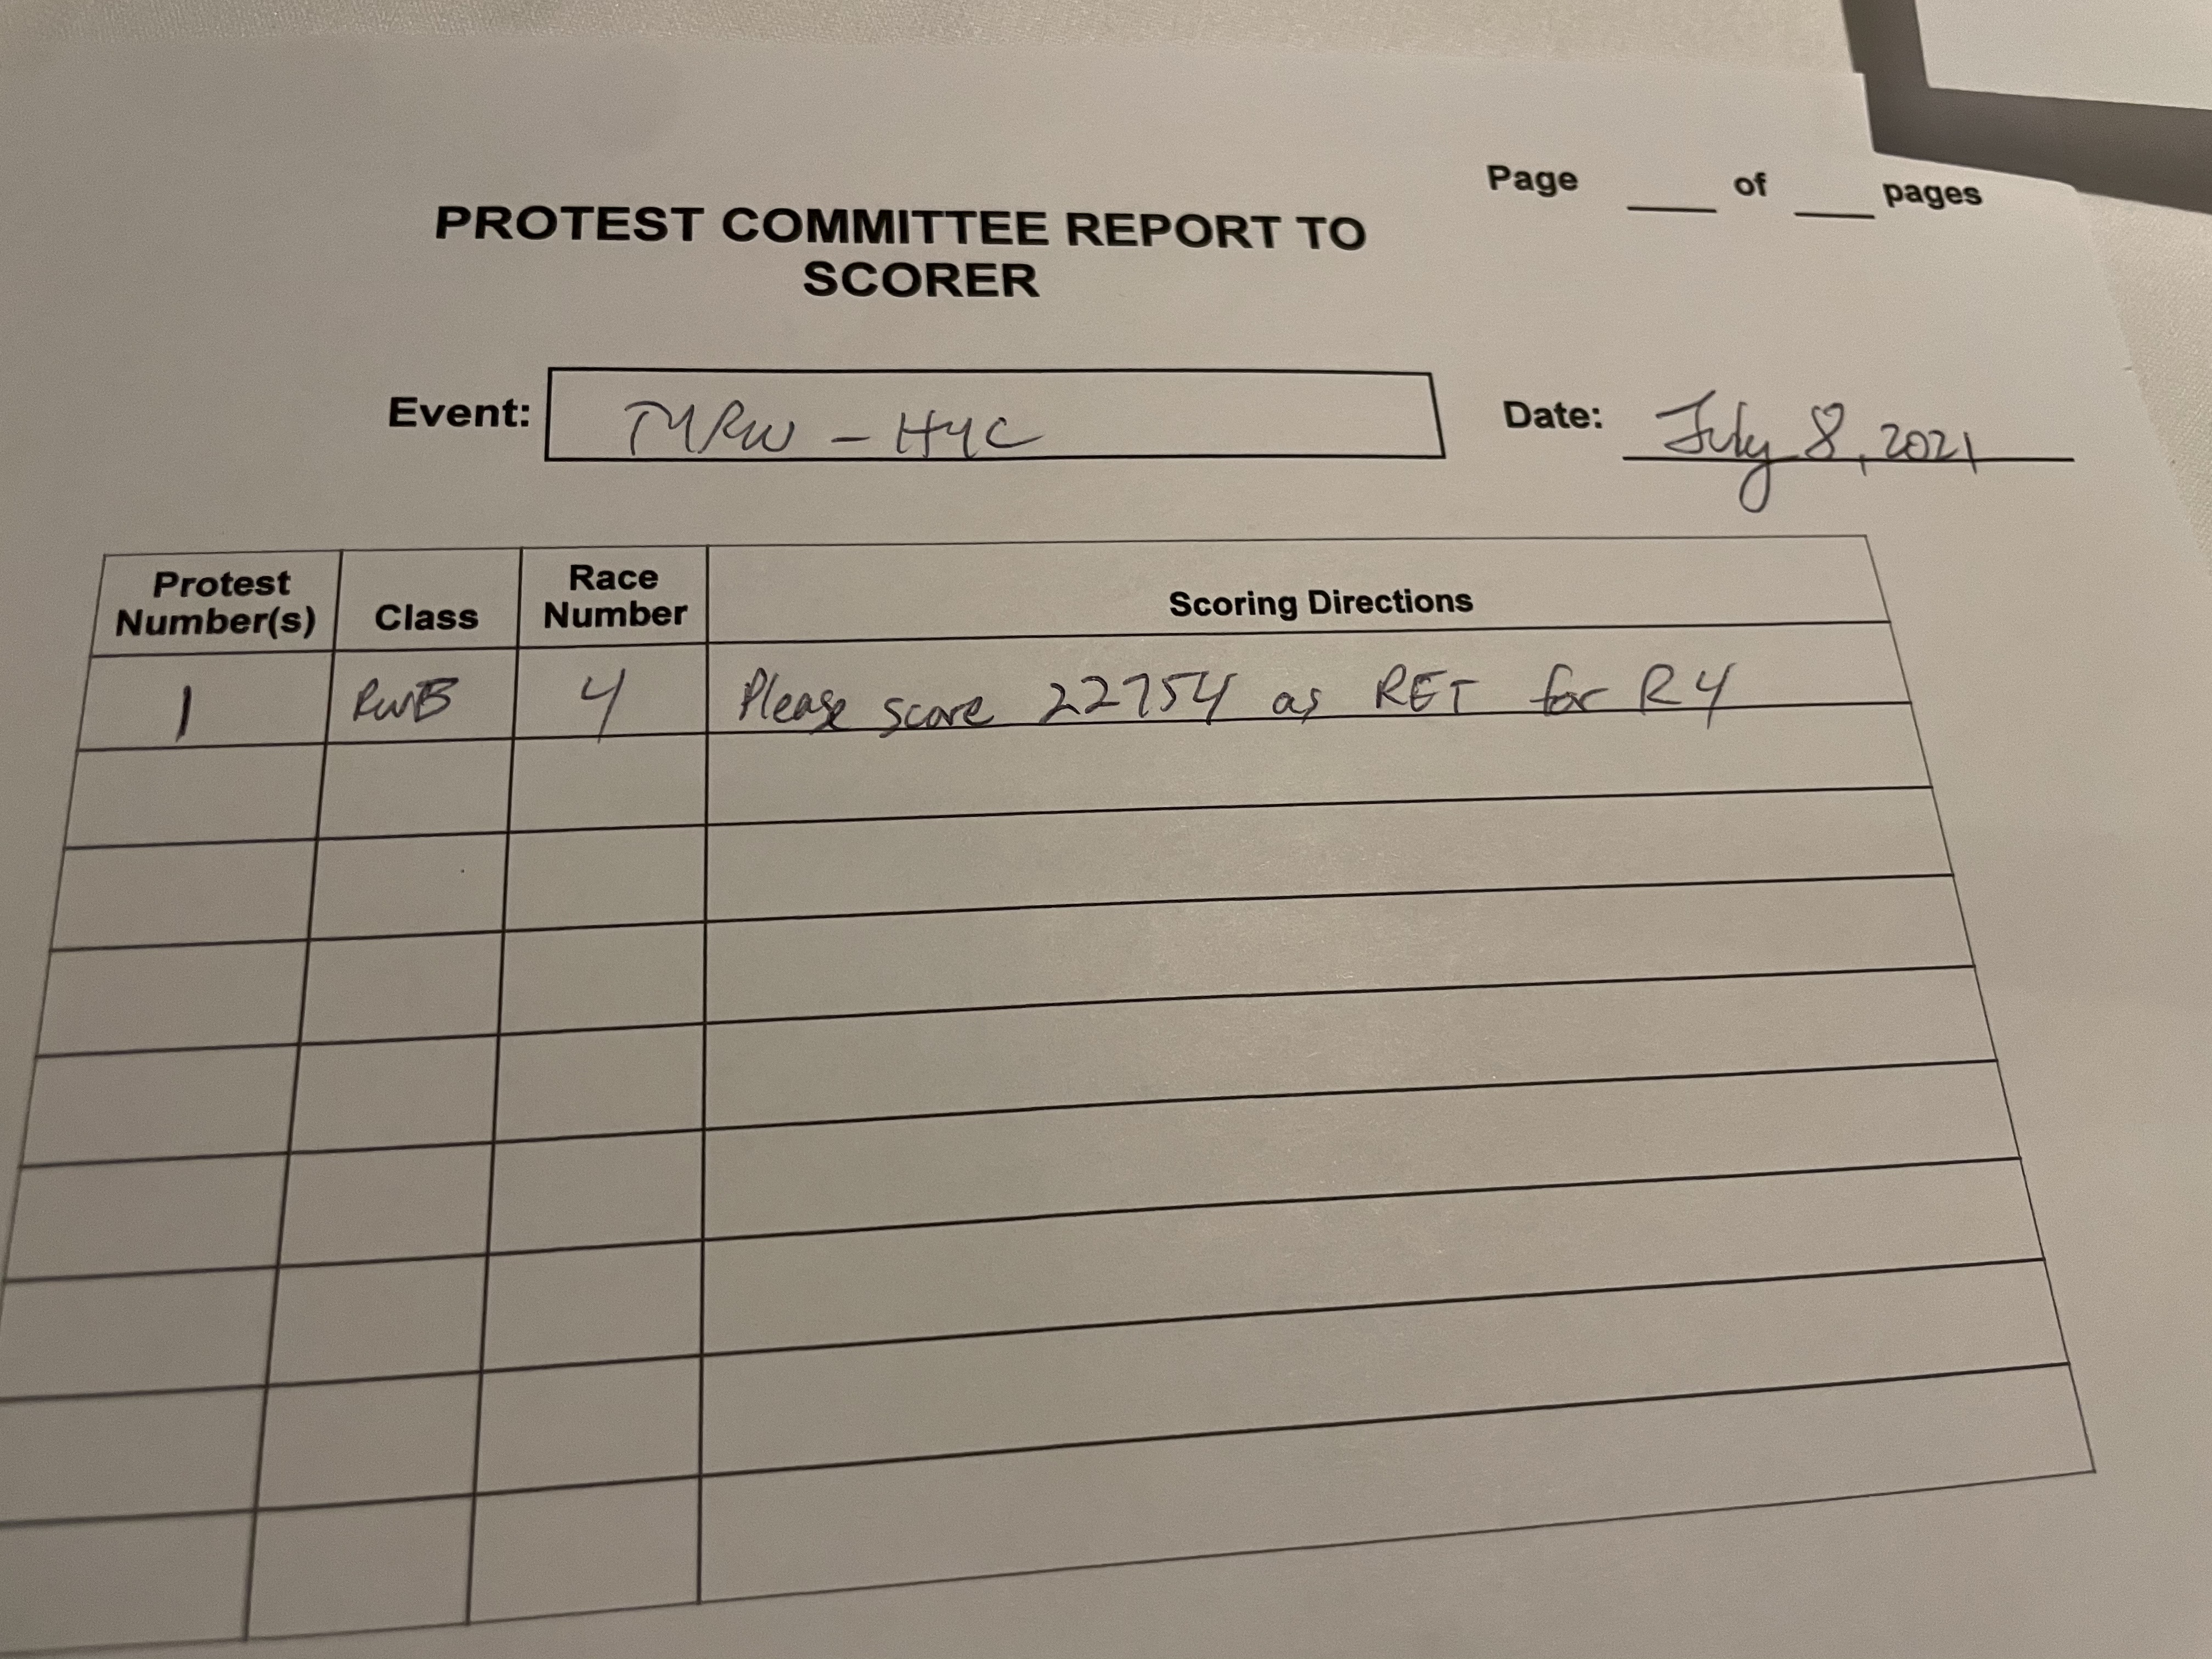 Page ___ of ___ pages
PROTEST COMMITTEE REPORT TO
SCORER
Event: MRW - HYC Date: July 8, 2021
Protest Number(s) Class Race Number Scoring Directions
1 RWB 4 Please score 22754 as RET for R4